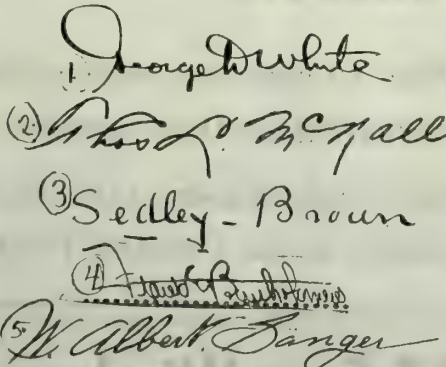 1. George W White
(2) Thos L. McNall
(3) Sedley - Brown
(4)
(5) W. Albert. Sanger